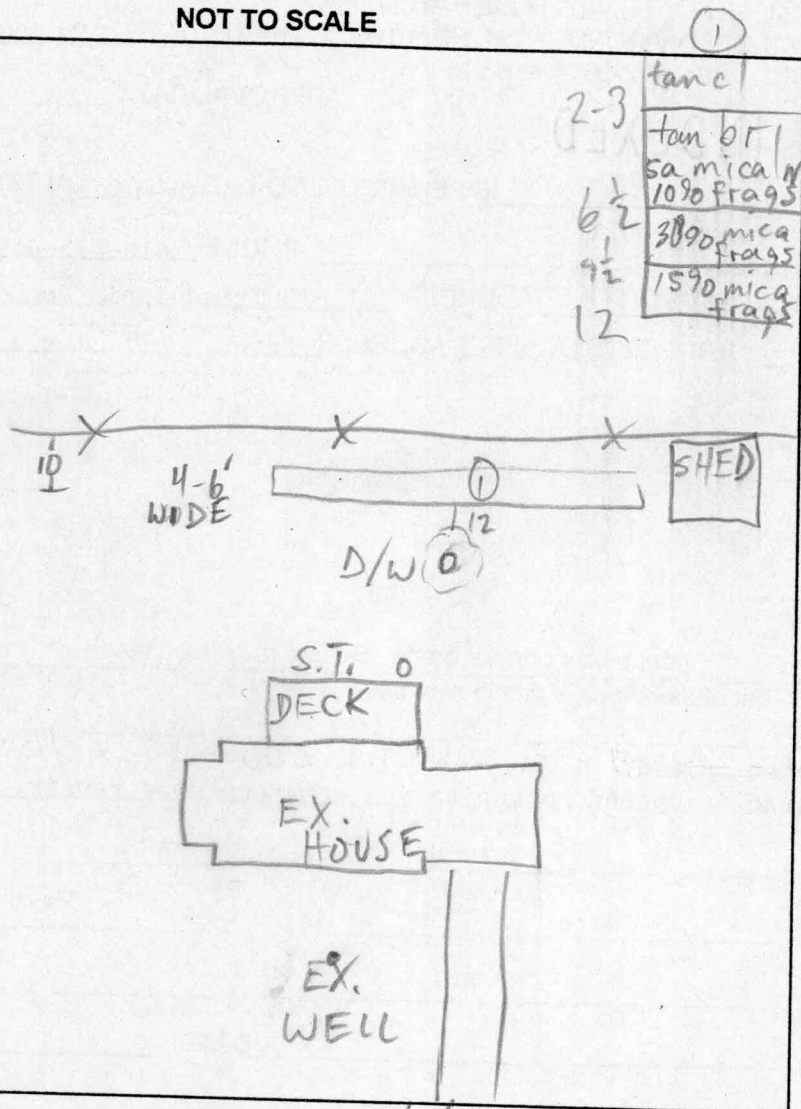 NOT TO SCALE
1
tan cl
2-3
tan br l
sa mica
10% frags
6 1/2
30% mica
frags
9 1/2
15% mica
frags
12
10
4-6'
WIDE
1
SHED
12
D/W
S.T.
DECK
EX.
HOUSE
EX.
WELL